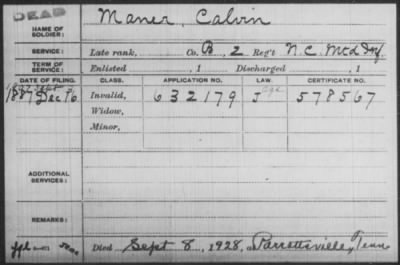 DEAD
NAME OF SOLDIER: Maner, Calvin
SERVICE: Late rank, Co. B, 2 Reg't N.C. Mtd Inf.
TERM OF SERVICE: Enlisted , 1 Discharged , 1
DATE OF FILING. CLASS. APPLICATION NO. LAW. CERTIFICATE NO.
1887 Dec 16 Invalid, 632179 J 578567
Widow,
Minor,
ADDITIONAL SERVICES:
REMARKS:
Died Sept 8, 1928, at Parrottsville, Tenn